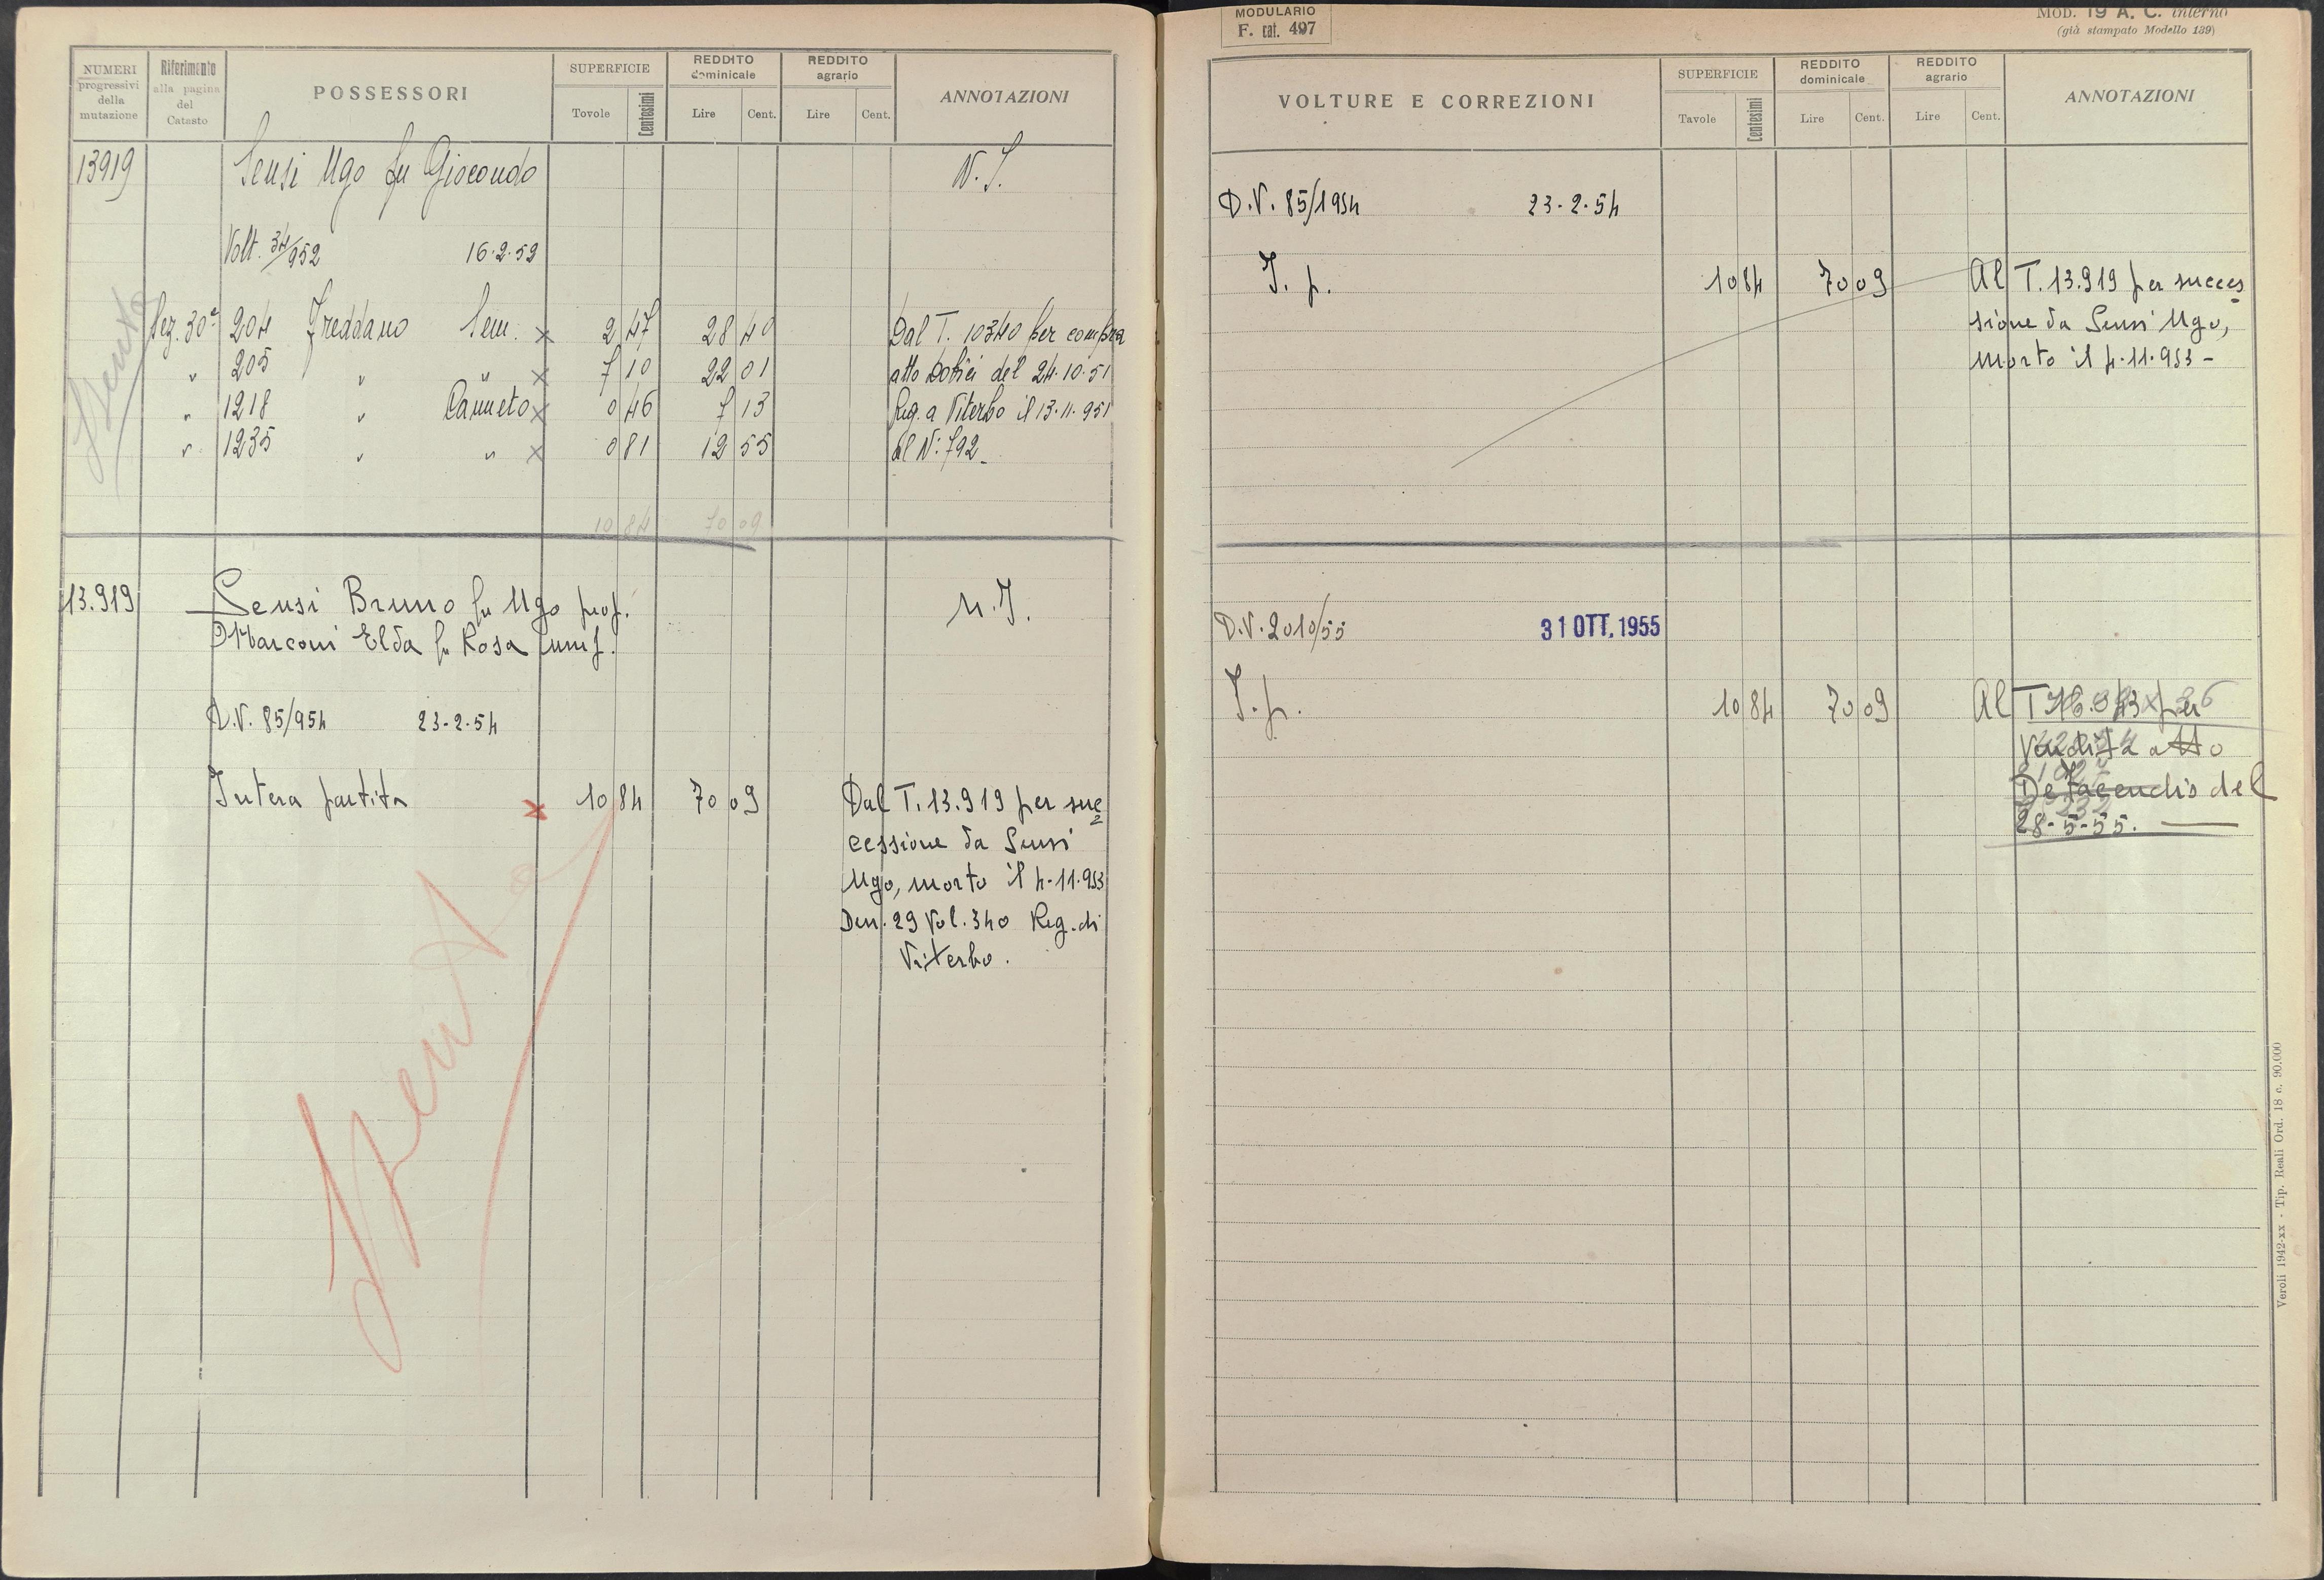 NUMERI progressivi della mutazione
Riferimento alla pagina del Catasto
POSSESSORI
SUPERFICIE
Tavole Centesimi
REDDITO dominicale
Lire Cent.
REDDITO agrario
Lire Cent.
ANNOTAZIONI
13919 Sensi Ugo fu Giocondo N. I.
Volt. 34/952 16.2.52
Spento
Sez. 30ª 204 Freddano Sem. x 2 47 28 40 Dal T. 10340 per compra
" 205 " " x 7 10 22 01 atto del 24.10.51
" 1218 " Canneto x 0 46 7 13 Reg. a Viterbo il 13.11.951
" 1235 " " x 0 81 12 55 al N: 792_
10 84 70 09
13.919 Sensi Bruno fu Ugo prop. N. I.
Marconi Elda fu Rosa usuf.
D.V. 85/954 23-2-54
Intera partita x 10 84 70 09 Dal T. 13.919 per suc
cessione da Sensi
Ugo, morto il 4-11-953
Den. 29 Vol. 340 Reg. di
Viterbo.
Spento
MODULARIO
F. cat. 497
MOD. 19 A. C. interno
(già stampato Modello 139)
VOLTURE E CORREZIONI
SUPERFICIE
Tavole Centesimi
REDDITO dominicale
Lire Cent.
REDDITO agrario
Lire Cent.
ANNOTAZIONI
D.V. 85/1954 23-2-54
I. p. 10 84 70 09 Al T. 13.919 per succes
sione da Sensi Ugo,
morto il 4-11-953 -
D.V. 2010/55 31 OTT. 1955
I. p. 10 84 70 09 Al T per
Vendita atto
De Facendis del
28-5-55.
Veroli 1942-XX - Tip. Reali Ord. 18 c. 90.000